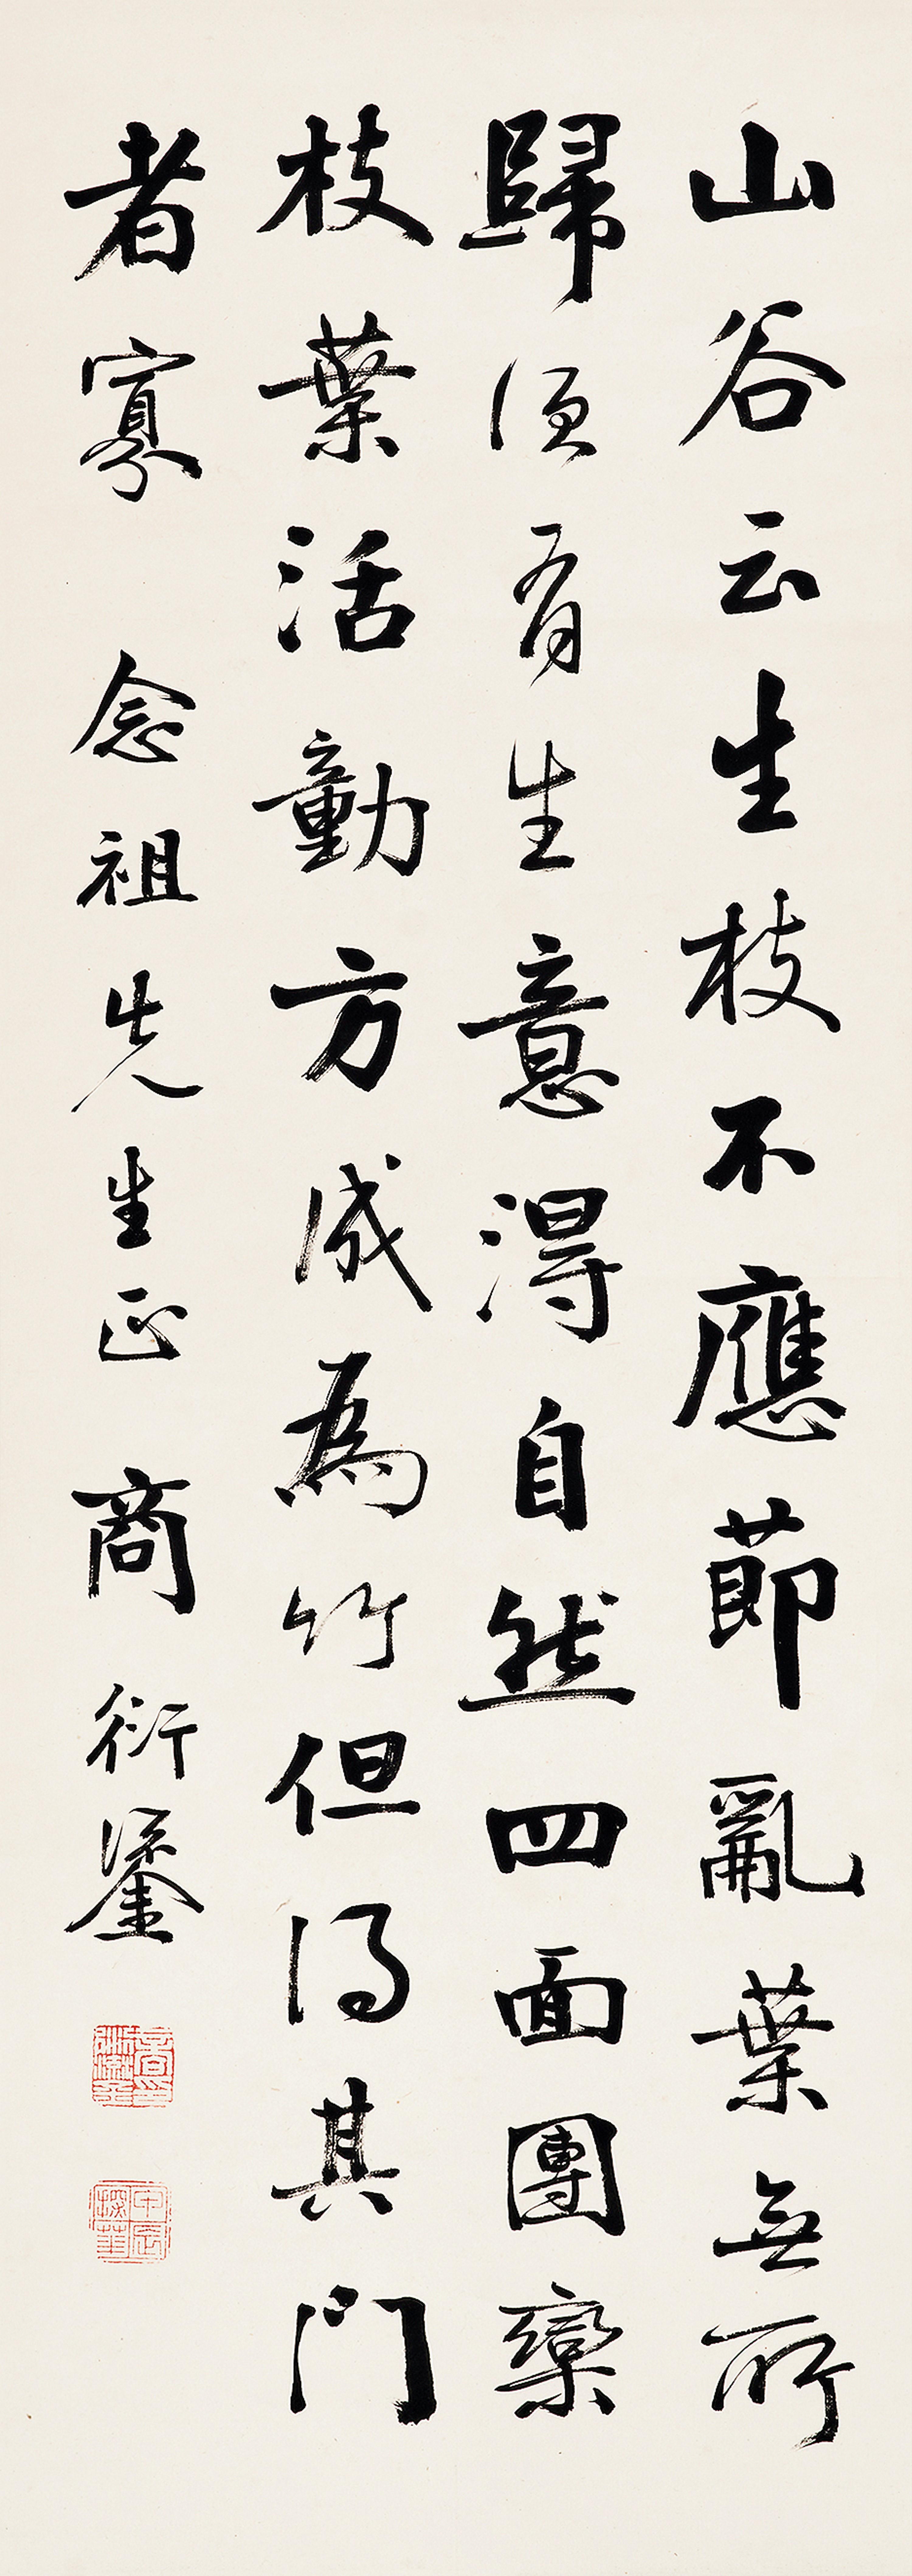 山谷云生枝不應節亂葉無所
歸須有生意得自然四面團欒
枝葉活動方成為竹但得其門
者寡 念祖先生正 商衍鎏